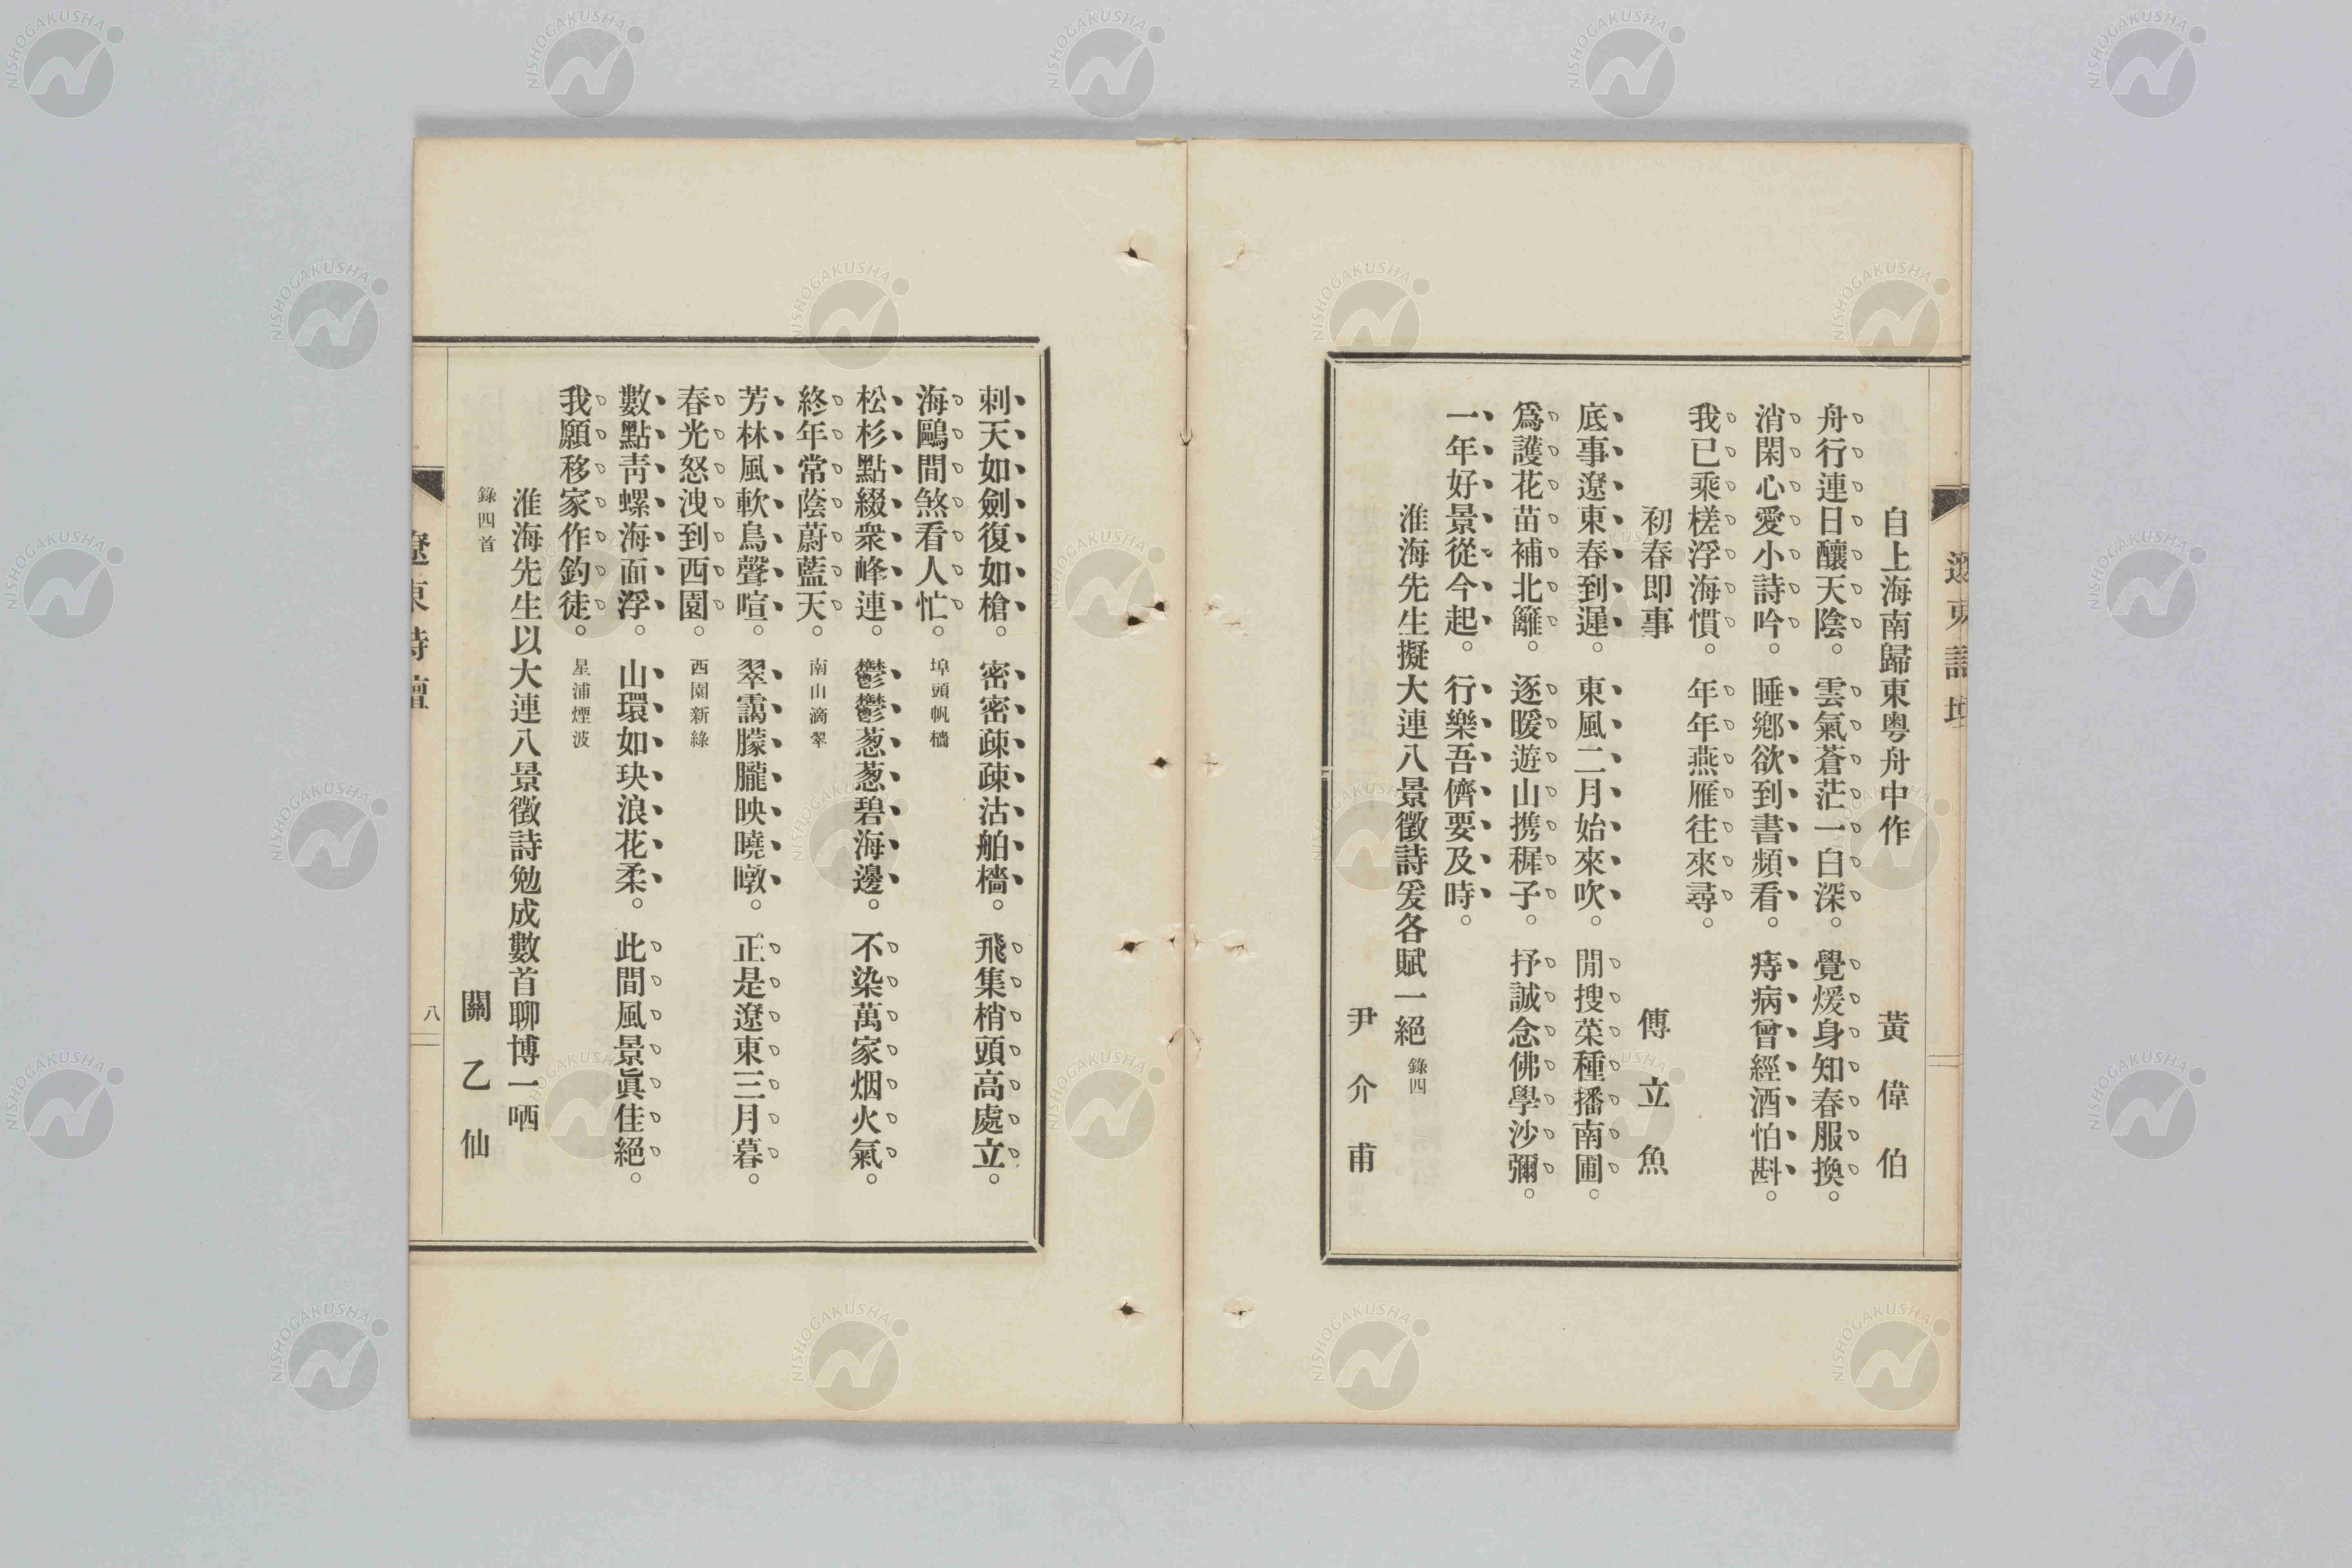 自上海南歸東粤舟中作 黃偉伯
舟行連日釀天陰。雲氣蒼茫一白深。覺煖身知春服換。
消閑心愛小詩吟。睡鄕欲到書頻看。痔病曾經酒怕斟。
我已乘槎浮海慣。年年燕雁往來尋。
初春即事 傅立魚
底事遼東春到遲。東風二月始來吹。閒搜菜種播南圃。
爲護花苗補北籬。逐暖遊山携穉子。抒誠念佛學沙彌。
一年好景從今起。行樂吾儕要及時。
淮海先生擬大連八景徵詩爰各賦一絕 錄四
尹介甫
刺天如劍復如槍。密密疎疎沽舶檣。飛集梢頭高處立。
海鷗間煞看人忙。 埠頭帆檣
松杉點綴衆峰連。鬱鬱葱葱碧海邊。不染萬家烟火氣。
終年常蔭蔚藍天。 南山滴翠
芳林風軟鳥聲喧。翠靄朦朧映曉暾。正是遼東三月暮。
春光怒洩到西園。 西園新綠
數點靑螺海面浮。山環如玦浪花柔。此間風景眞佳絕。
我願移家作釣徒。 星浦煙波
淮海先生以大連八景徵詩勉成數首聊博一哂
錄四首 關乙仙
遼東詩壇
八
NISHOGAKUSHA